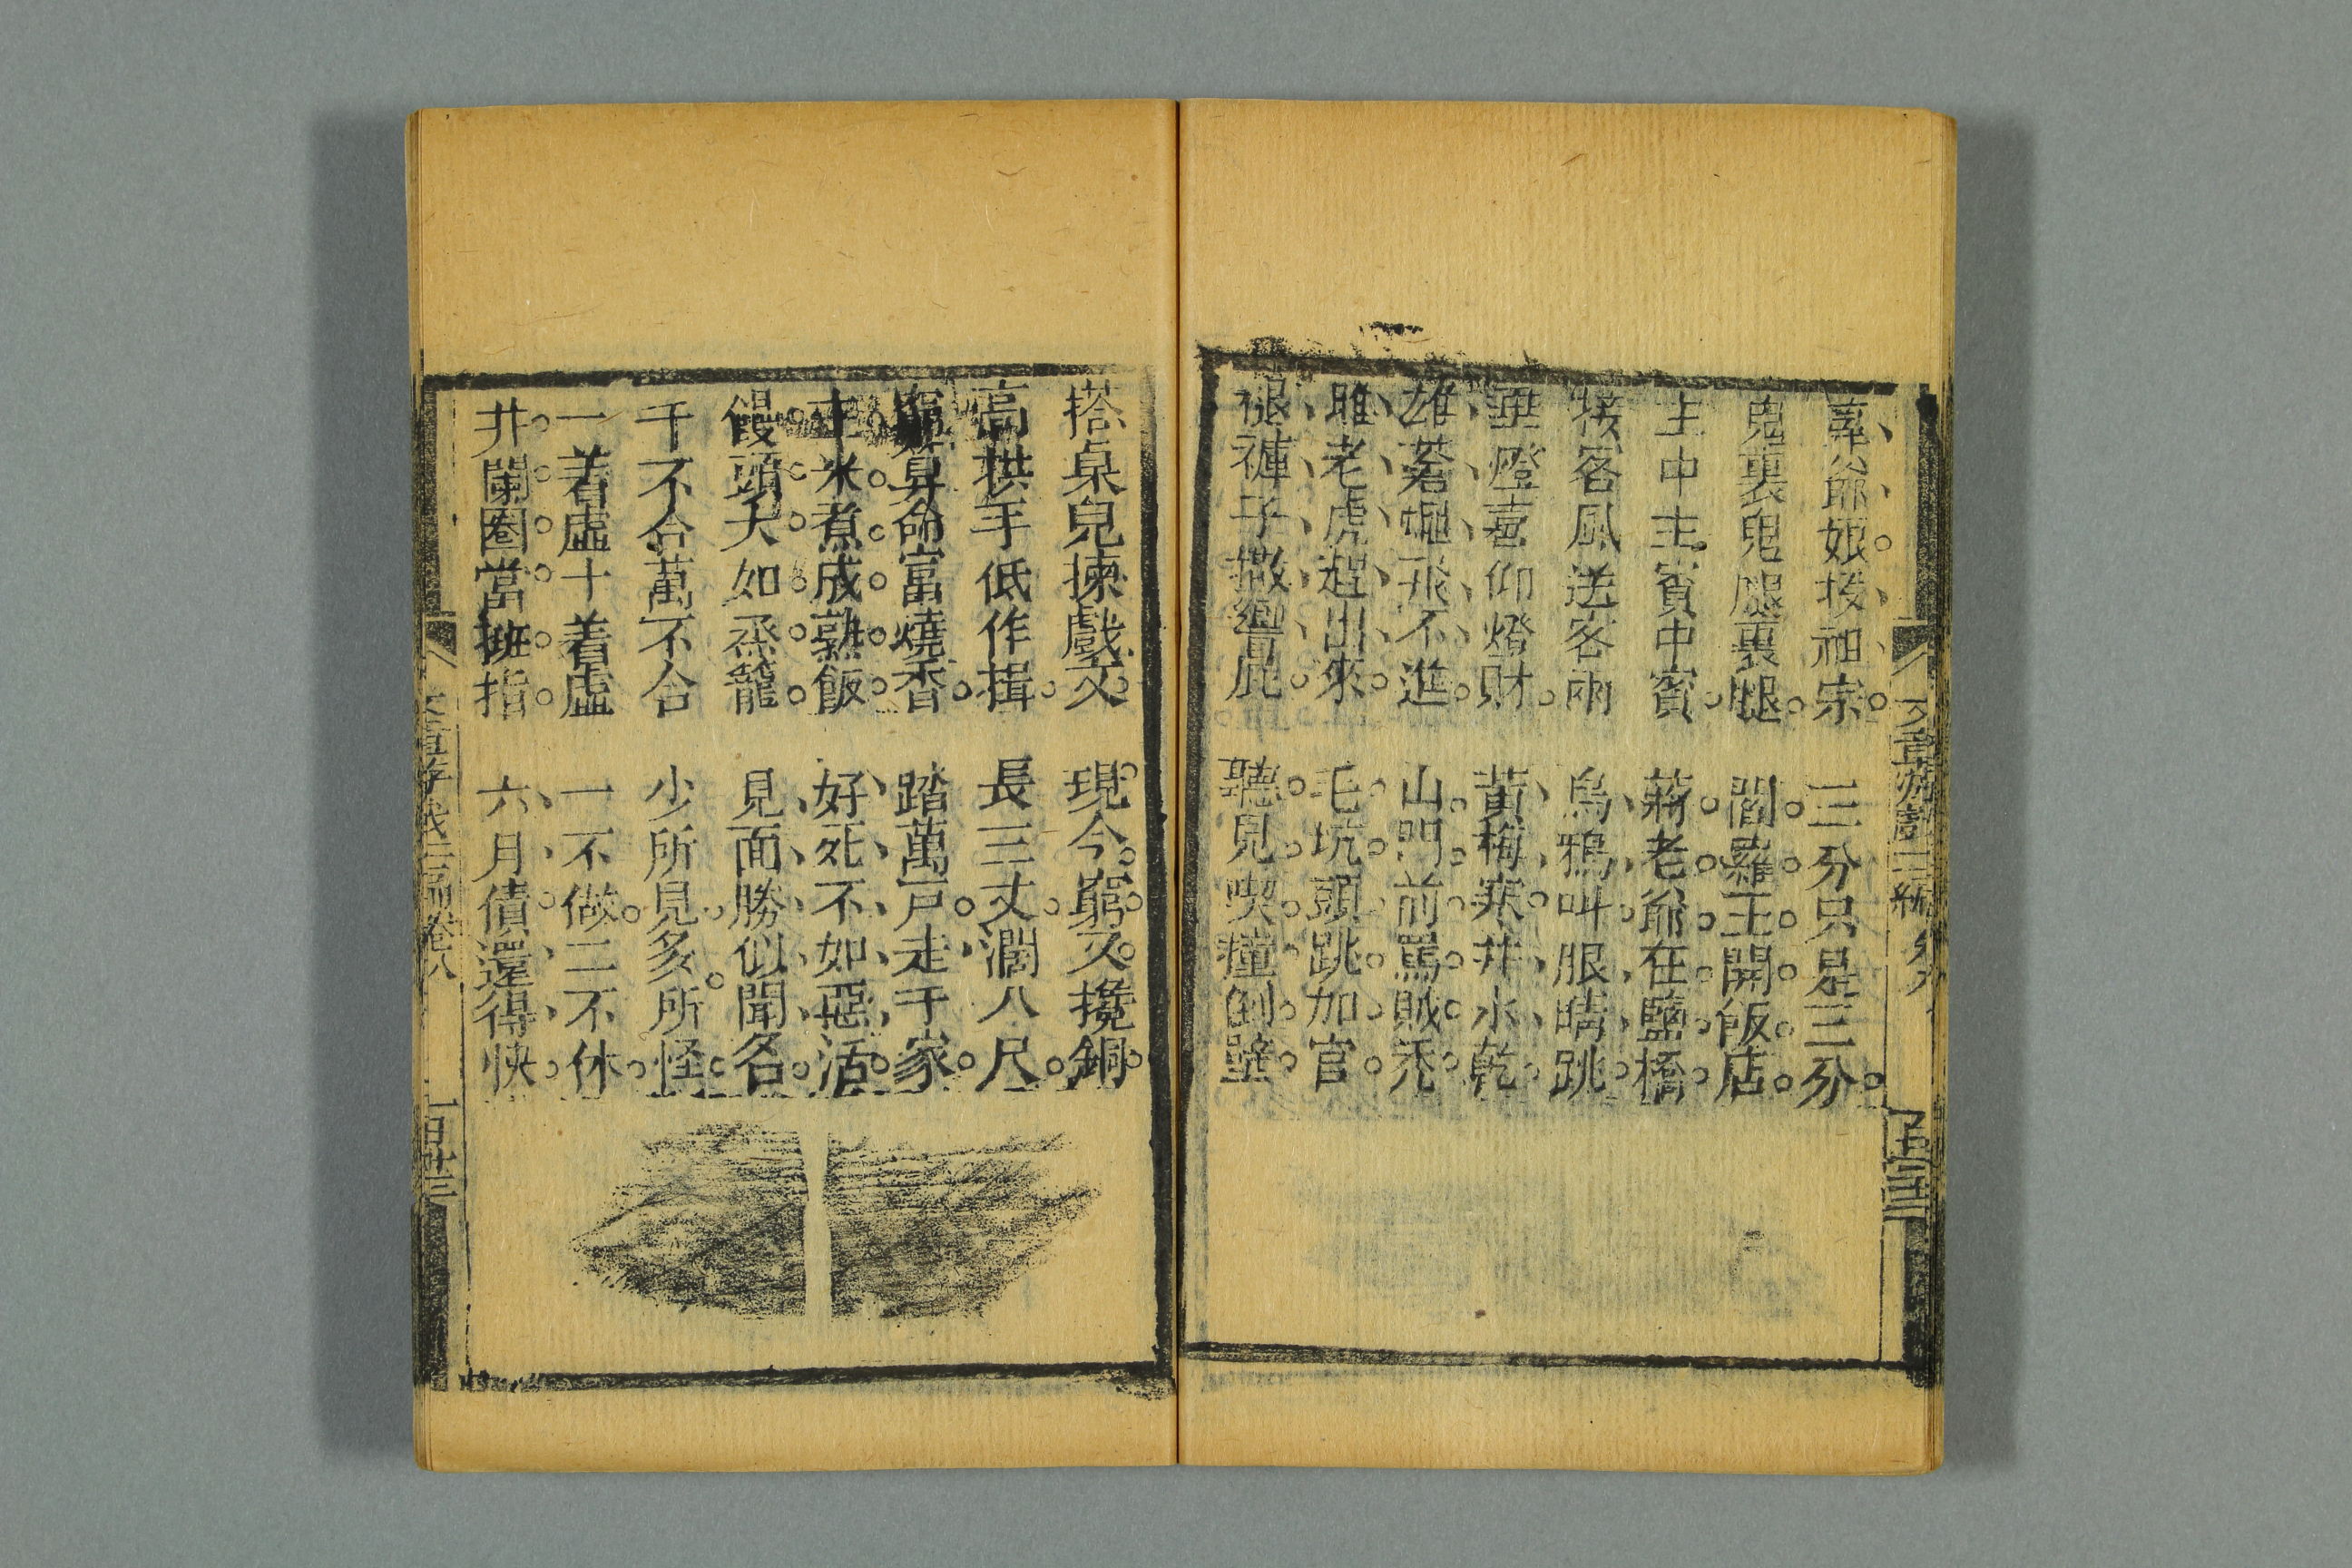 爺娘授祖宗
三分只是三分
鬼裏鬼腿裏腿
閻羅王開飯店
主中主賓中賓
蔣老爺在鹽橋
接客風送客雨
烏鴉叫眼睛跳
垂燈喜仰燈財
黃梅寒井水乾
雄蒼蠅飛不進
山門前罵賊禿
雌老虎趕出來
毛坑頭跳加官
褪褲子撒響屁
聽見喫糧倒壁
文章游戲三編 卷八
搭臬兒揀戲文
現今窮又攙銅
高拱手低作揖
長三丈濶八尺
窮算命富燒香
踏萬戸走千家
米煮成熟飯
好死不如惡活
饅頭大如蒸籠
見面勝似聞名
千不合萬不合
少所見多所怪
一着虛十着虛
一不做二不休
井闌圈當搬指
六月債還得快
文章游戲三編卷八
一百廿三